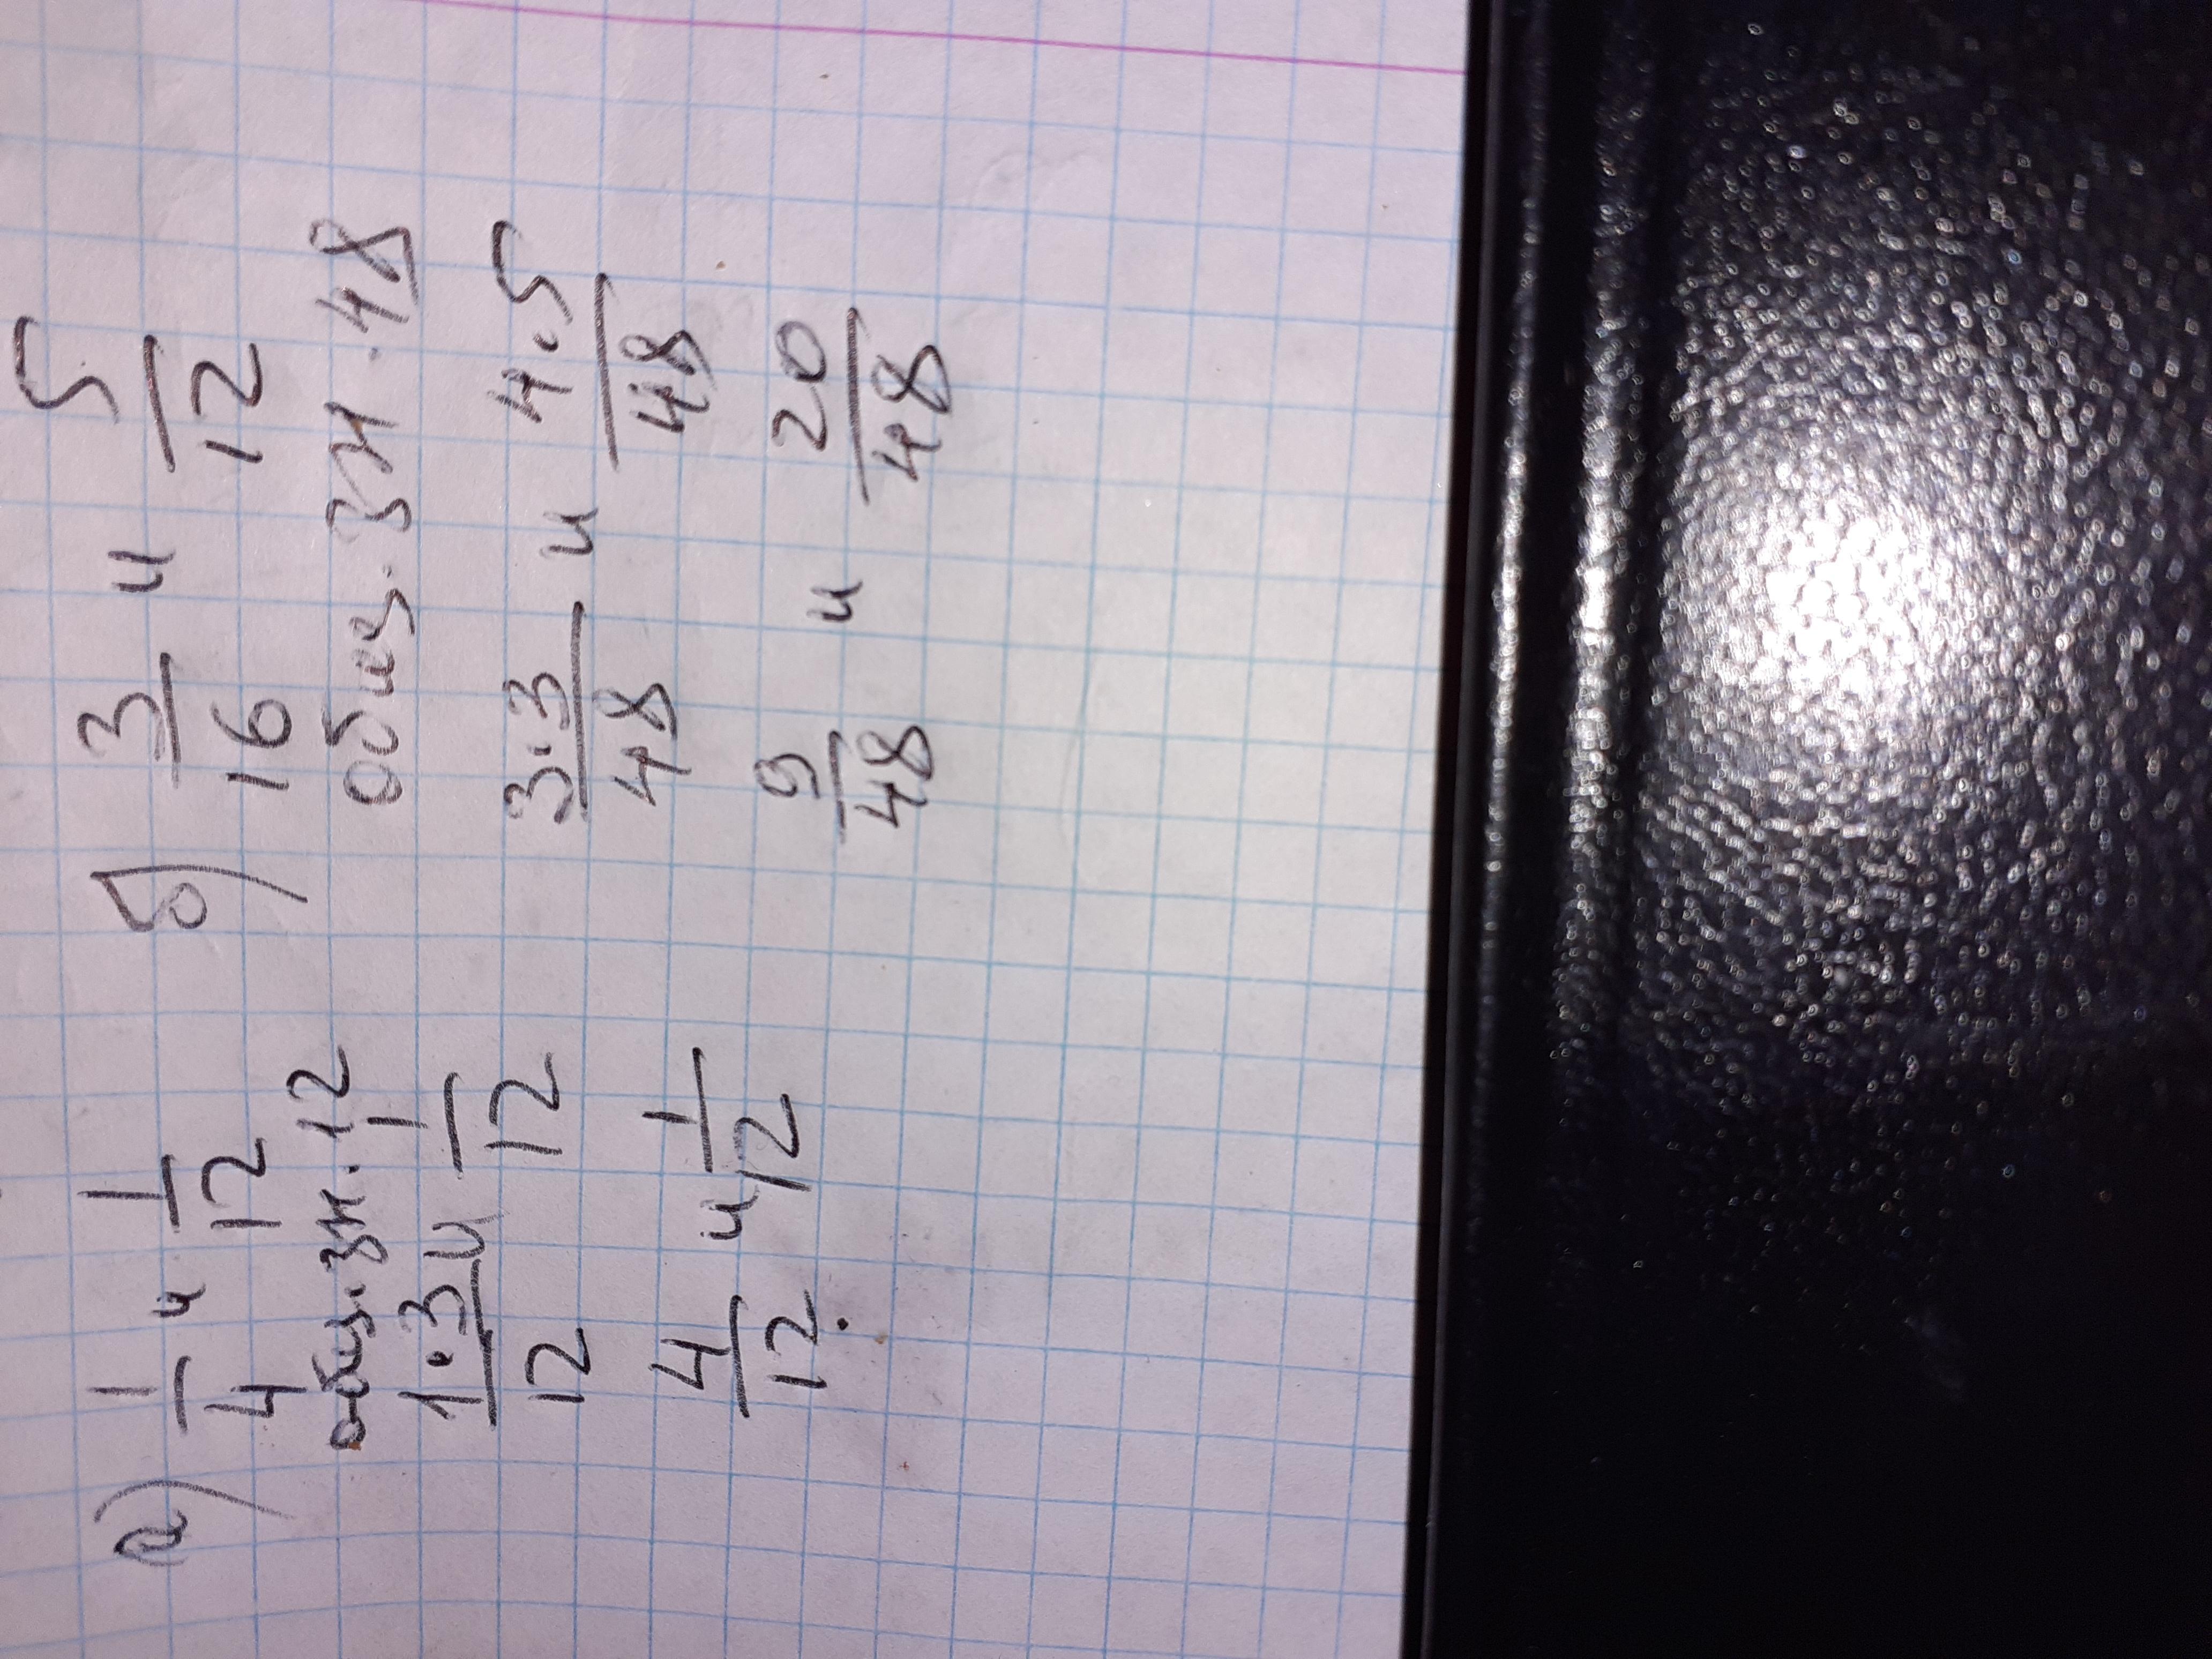 а) 1/4 и 1/12
общ. зн. 12
1·3/12 и 1/12
4/12. и 1/12
б) 3/16 и 5/12
общ. зн. 48
3·3/48 и 4·5/48
9/48 и 20/48